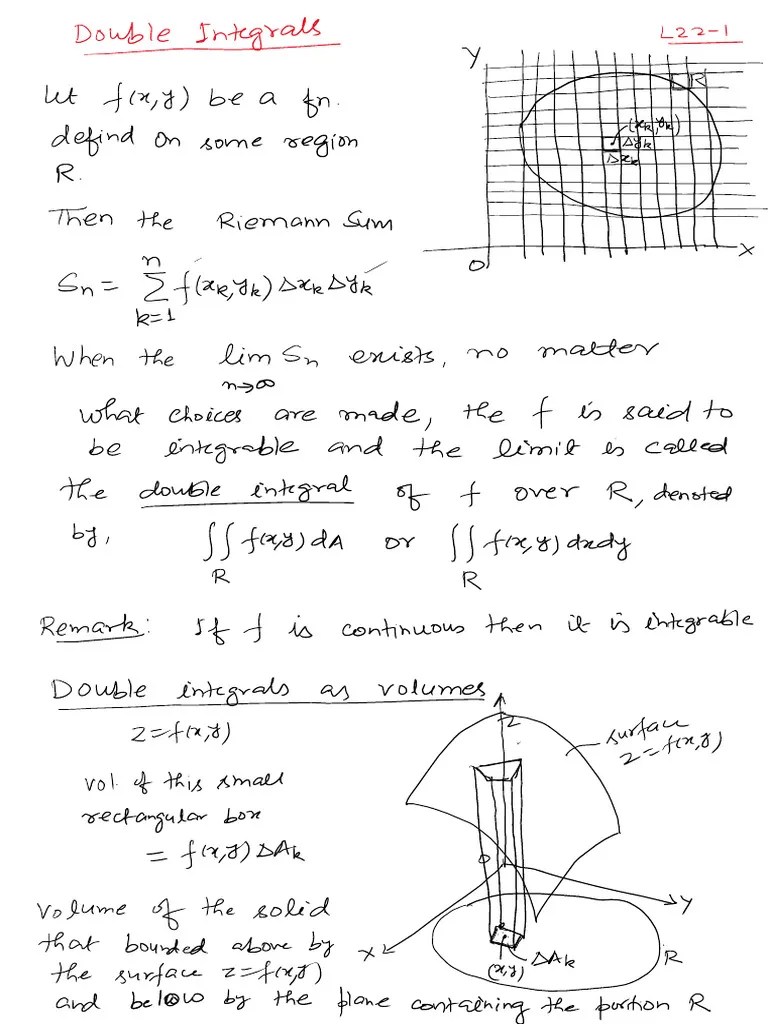 Double Integrals
L22-1
Let f(x,y) be a fn.
defind on some region
R.
Then the Riemann Sum
Sn = n∑k=1 f(xk,yk) Δxk Δyk
Y
R
(xk,yk)
Δyk
Δxk
X
O
When the lim n→∞ Sn exists, no matter
what choices are made, the f is said to
be integrable and the limit is called
the double integral of f over R, denoted
by, ∬R f(x,y) dA or ∬R f(x,y) dxdy
Remark: If f is continuous then it is integrable
Double integrals as volumes
z=f(x,y)
vol. of this small
rectangular box
= f(x,y) ΔAk
volume of the solid
that bounded above by
the surface z=f(x,y)
and below by the plane containing the portion R
Z
surface
z=f(x,y)
O
Y
X
ΔAk
R
(x,y)